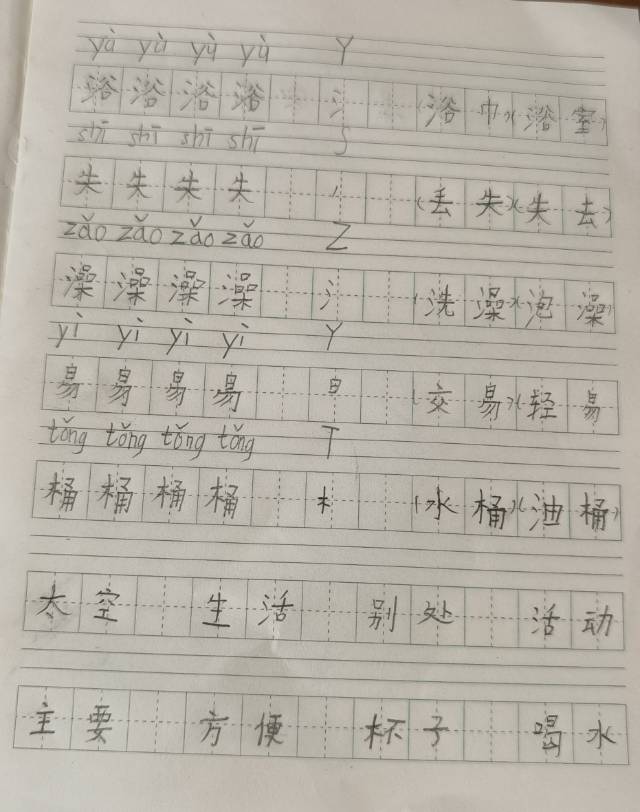 yù yù yù yù Y
浴 浴 浴 浴 氵 (浴巾)(浴室)
shī shī shī shī S
失 失 失 失 丿 (丢失)(失去)
zǎo zǎo zǎo zǎo Z
澡 澡 澡 澡 氵 (洗澡)(泡澡)
yì yì yì yì Y
易 易 易 易 日 (交易)(轻易)
tǒng tǒng tǒng tǒng T
桶 桶 桶 桶 木 (水桶)(油桶)
太空 生活 别处 活动
主要 方便 杯子 喝水